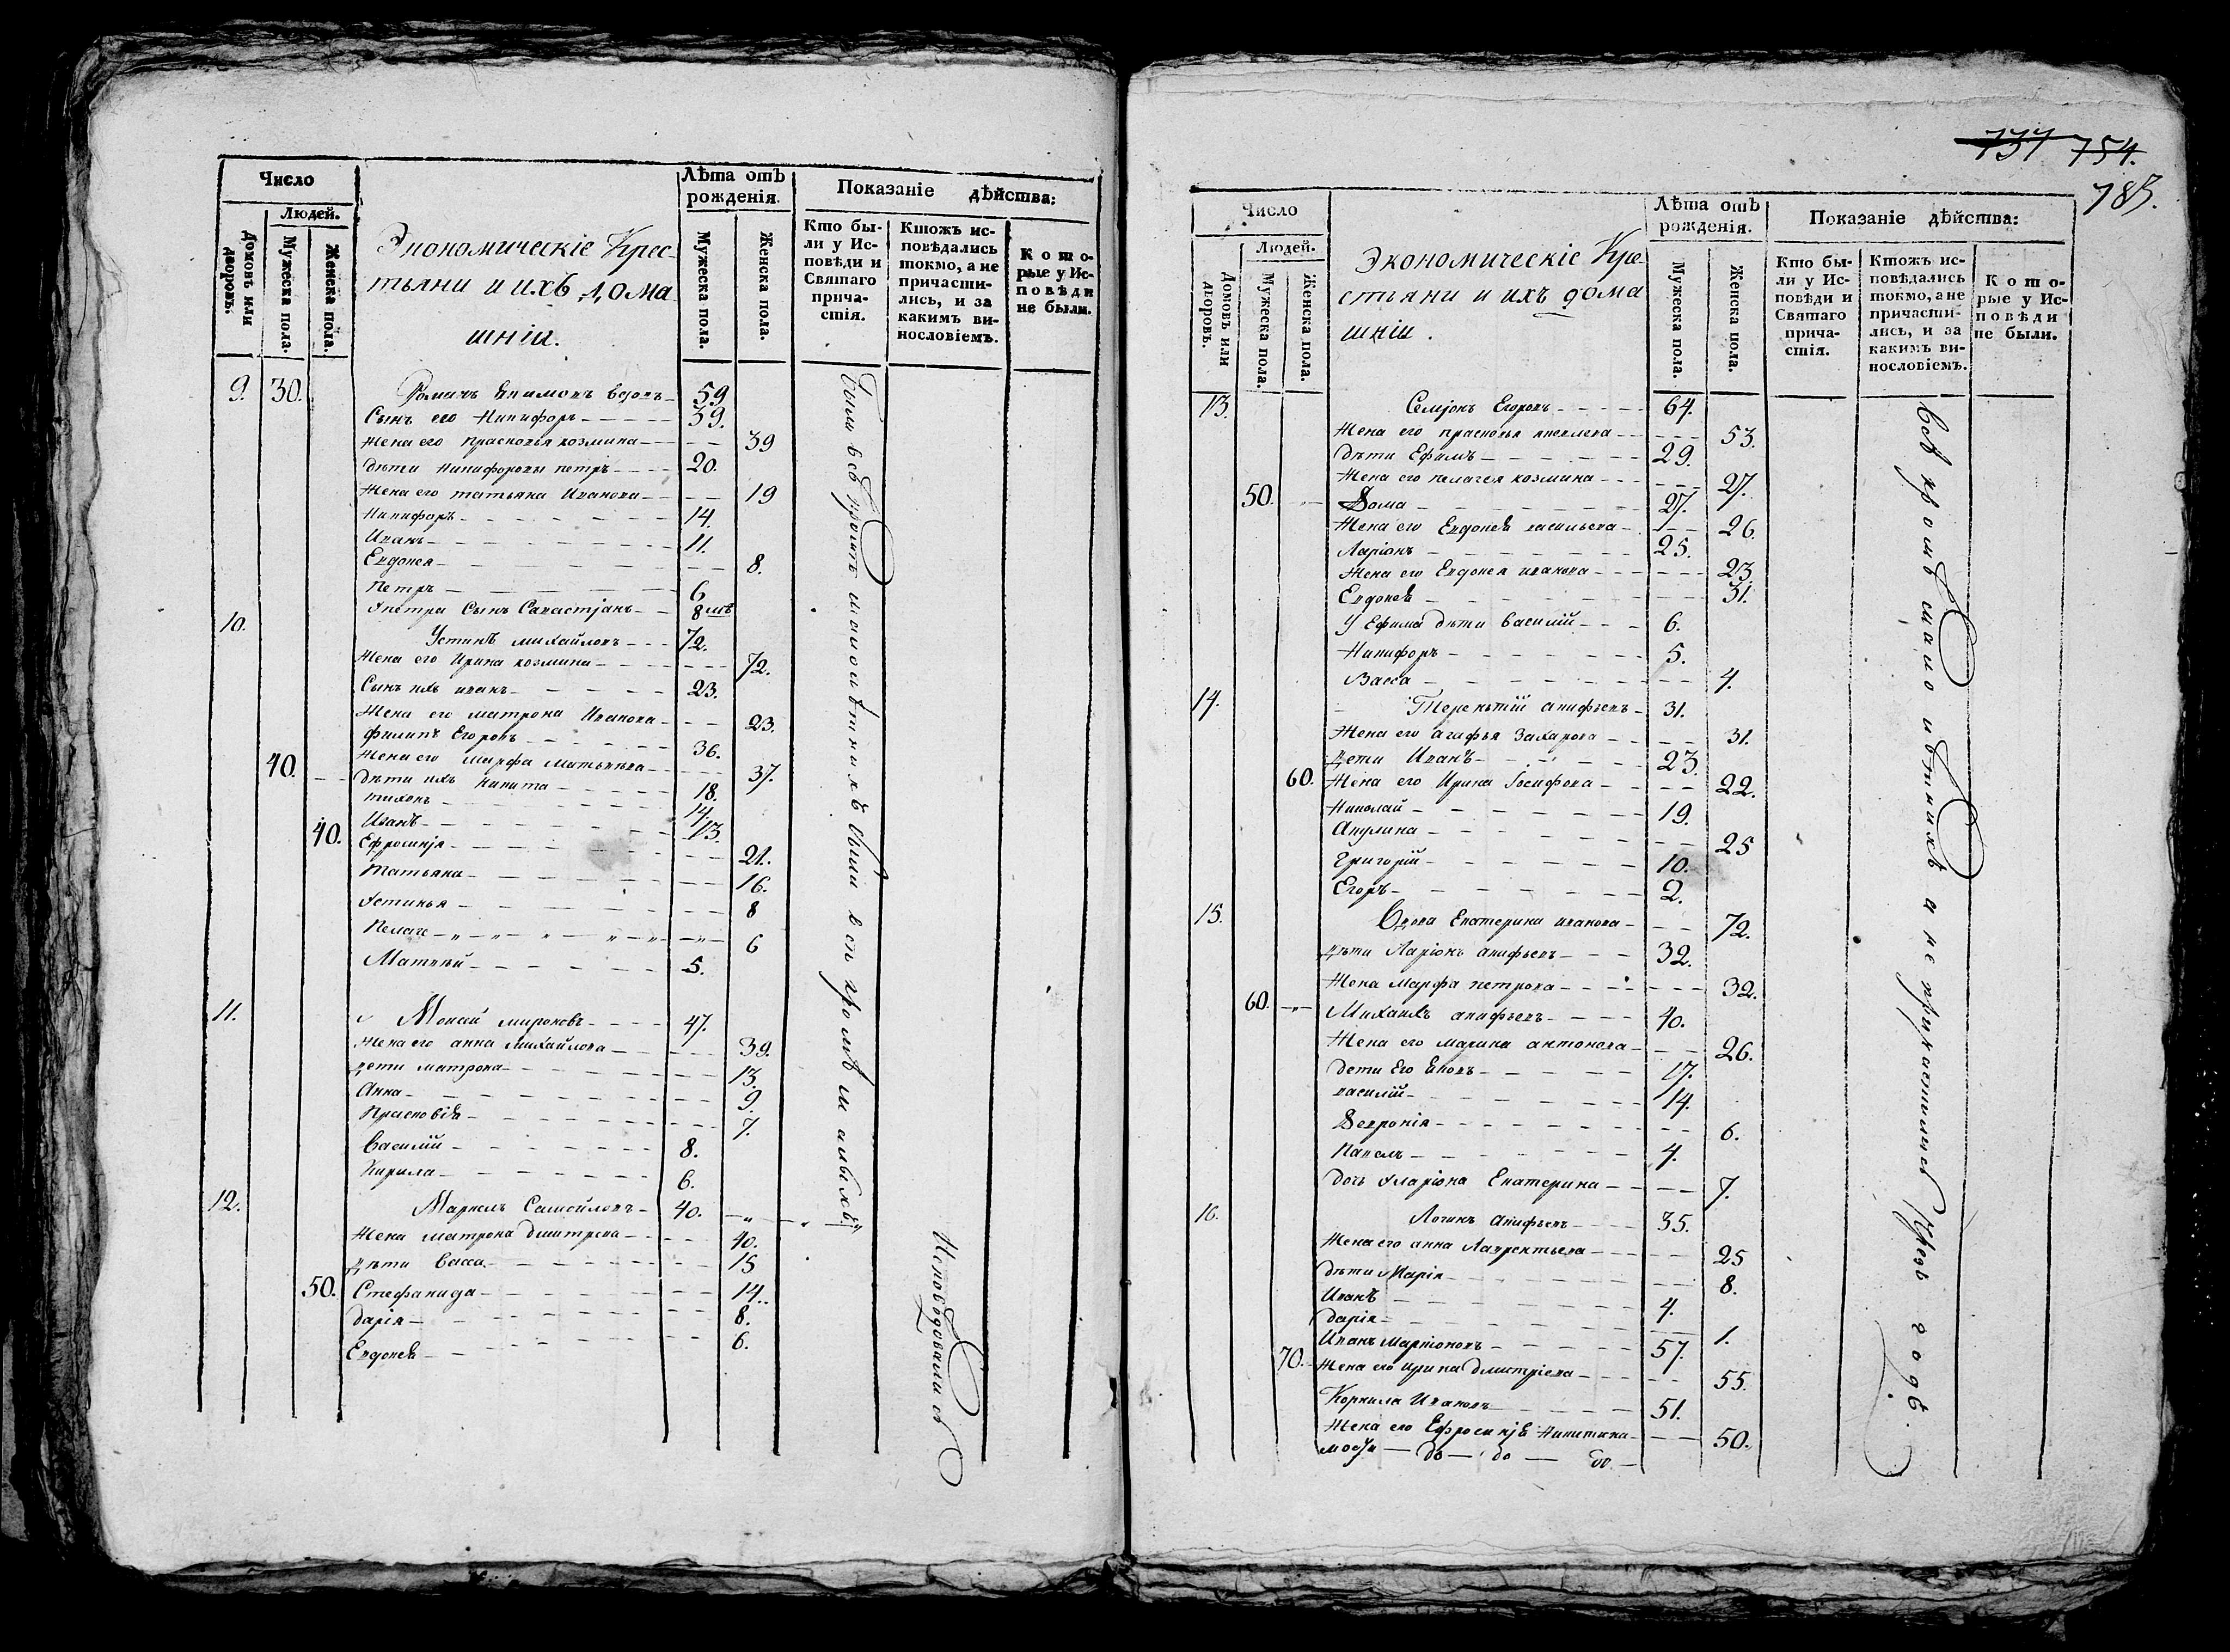 Число
Людей.
Домовъ или дворовъ.
Мужеска пола.
Женска пола.
Экономическіе Крес-
тьяни и ихъ дома
шніи.
Лѣта отъ
рожденія.
Мужеска пола.
Женска пола.
Показаніе дѣйства:
Кто бы-
ли у Ис-
повѣди и
Святаго
прича-
стія.
Ктожъ ис-
повѣдались
токмо, а не
причасти-
лись, и за
какимъ ви-
нословіемъ.
Кото-
рые у Ис-
повѣди
не были.
9. 30. Романъ 59
Сынъ его Никифоръ 39.
Жена его Прасковья козмина 39
дѣти Никифоровы петръ 20.
Жена его татьяна Иванова 19
Никифоръ 14.
Иванъ 11.
Евдокея 8.
Петръ 6
Упетра Сынъ Савастјанъ 8
10. Устинъ михайловъ 72.
Жена его Ирина козмина 72.
Сынъ ихъ иванъ 23.
Жена его матрона Иванова 23.
филипъ Егоровъ 36.
Жена его марфа Матьвѣва 37.
40. дѣти ихъ никита 18.
тихонъ 14
Иванъ 13.
40. Ефросинја 21.
Татьяна 16.
Устинья 8
Пелаге 6
Матвѣй 5.
11. Мокей мироновъ 47.
Жена его анна михайлова 39.
дети матрона 13.
Анна 9.
Прасковіѣ 7.
Василій 8.
Кирила 6.
12. Маркелъ Самойловъ 40.
Жена матрона дмитрева 40.
дѣти васса 15
50. Стефанида 14.
дарія 8.
Евдокеѣ 6.
были всѣ
кромѣ малыхъ
Исповѣдовались
737 754.
783.
Число
Людей.
Домовъ или дворовъ.
Мужеска пола.
Женска пола.
Экономическіе Кре-
стьяни и ихъ дома
шніи.
Лѣта отъ
рожденія.
Мужеска пола.
Женска пола.
Показаніе дѣйства:
Кто бы-
ли у Ис-
повѣди и
Святаго
прича-
стія.
Ктожъ ис-
повѣдались
токмо, а не
причасти-
лись, и за
какимъ ви-
нословіемъ.
Кото-
рые у Ис-
повѣди
не были.
13. Семјонъ Егоровъ 64.
Жена его прасковья яковлева 53.
дѣти Ефимъ 29.
Жена его пелагея козмина 27.
50. Ѳома 27.
Жена его Евдокеѣ васильева 26.
Ларіонъ 25.
Жена его Евдокея иванова 23.
Евдокеѣ 31.
У Ефима дѣти василій 6.
Никифоръ 5.
Васса 4.
14. Терентій акифьевъ 31.
Жена его агафья Захарова 31.
дети Иванъ 23.
60. Жена его Ирина Іосифова 22.
Николай 19.
Акулина 25
Григорій 10.
Егоръ 2.
15. Вдова Екатерина иванова 72.
дѣти Ларіонъ акифьевъ 32.
Жена марфа петрова 32.
60. Михаилъ акифьевъ 40.
Жена его марина антонова 26.
дети Его Яковъ 17.
василій 14.
Ѳевронія 6.
Павелъ 4.
дочь Уларіона Екатерина 7.
16. Логинъ Акифьевъ 35.
Жена его анна Лаврентьева 25
дѣти Марія 8.
Иванъ 4.
дарія 1.
Иванъ Маріоновъ 57.
70. Жена его ирина дмитріева 55.
Корнила Ивановъ 51.
Жена его Ефросинјѣ Никитина 50.
всѣ кромѣ мало лѣтнихъ а не прикастились чрезъ годъ.